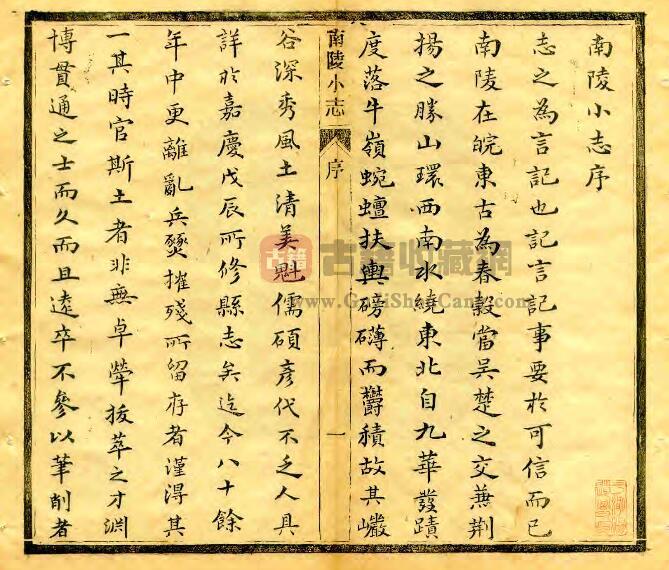 南陵小志序
志之為言記也記言記事要於可信而已
南陵在皖東古為春穀當吳楚之交兼荆
揚之勝山環西南水繞東北自九華發蹟
度落牛嶺蜿蟺扶輿磅礴而欝積故其巖
南陵小志
序
一
谷深秀風土清美魁儒碩彥代不乏人具
詳於嘉慶戊辰所修縣志矣迄今八十餘
年中更離亂兵燹摧殘所留存者謹得其
一其時官斯土者非無卓犖拔萃之才淵
博貫通之士而久而且遠卒不參以筆削者
古籍收藏網